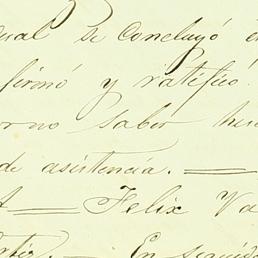 se Concluyó
firmó y ratificó
no saber
de asistencia.
Felix Va
En seguida